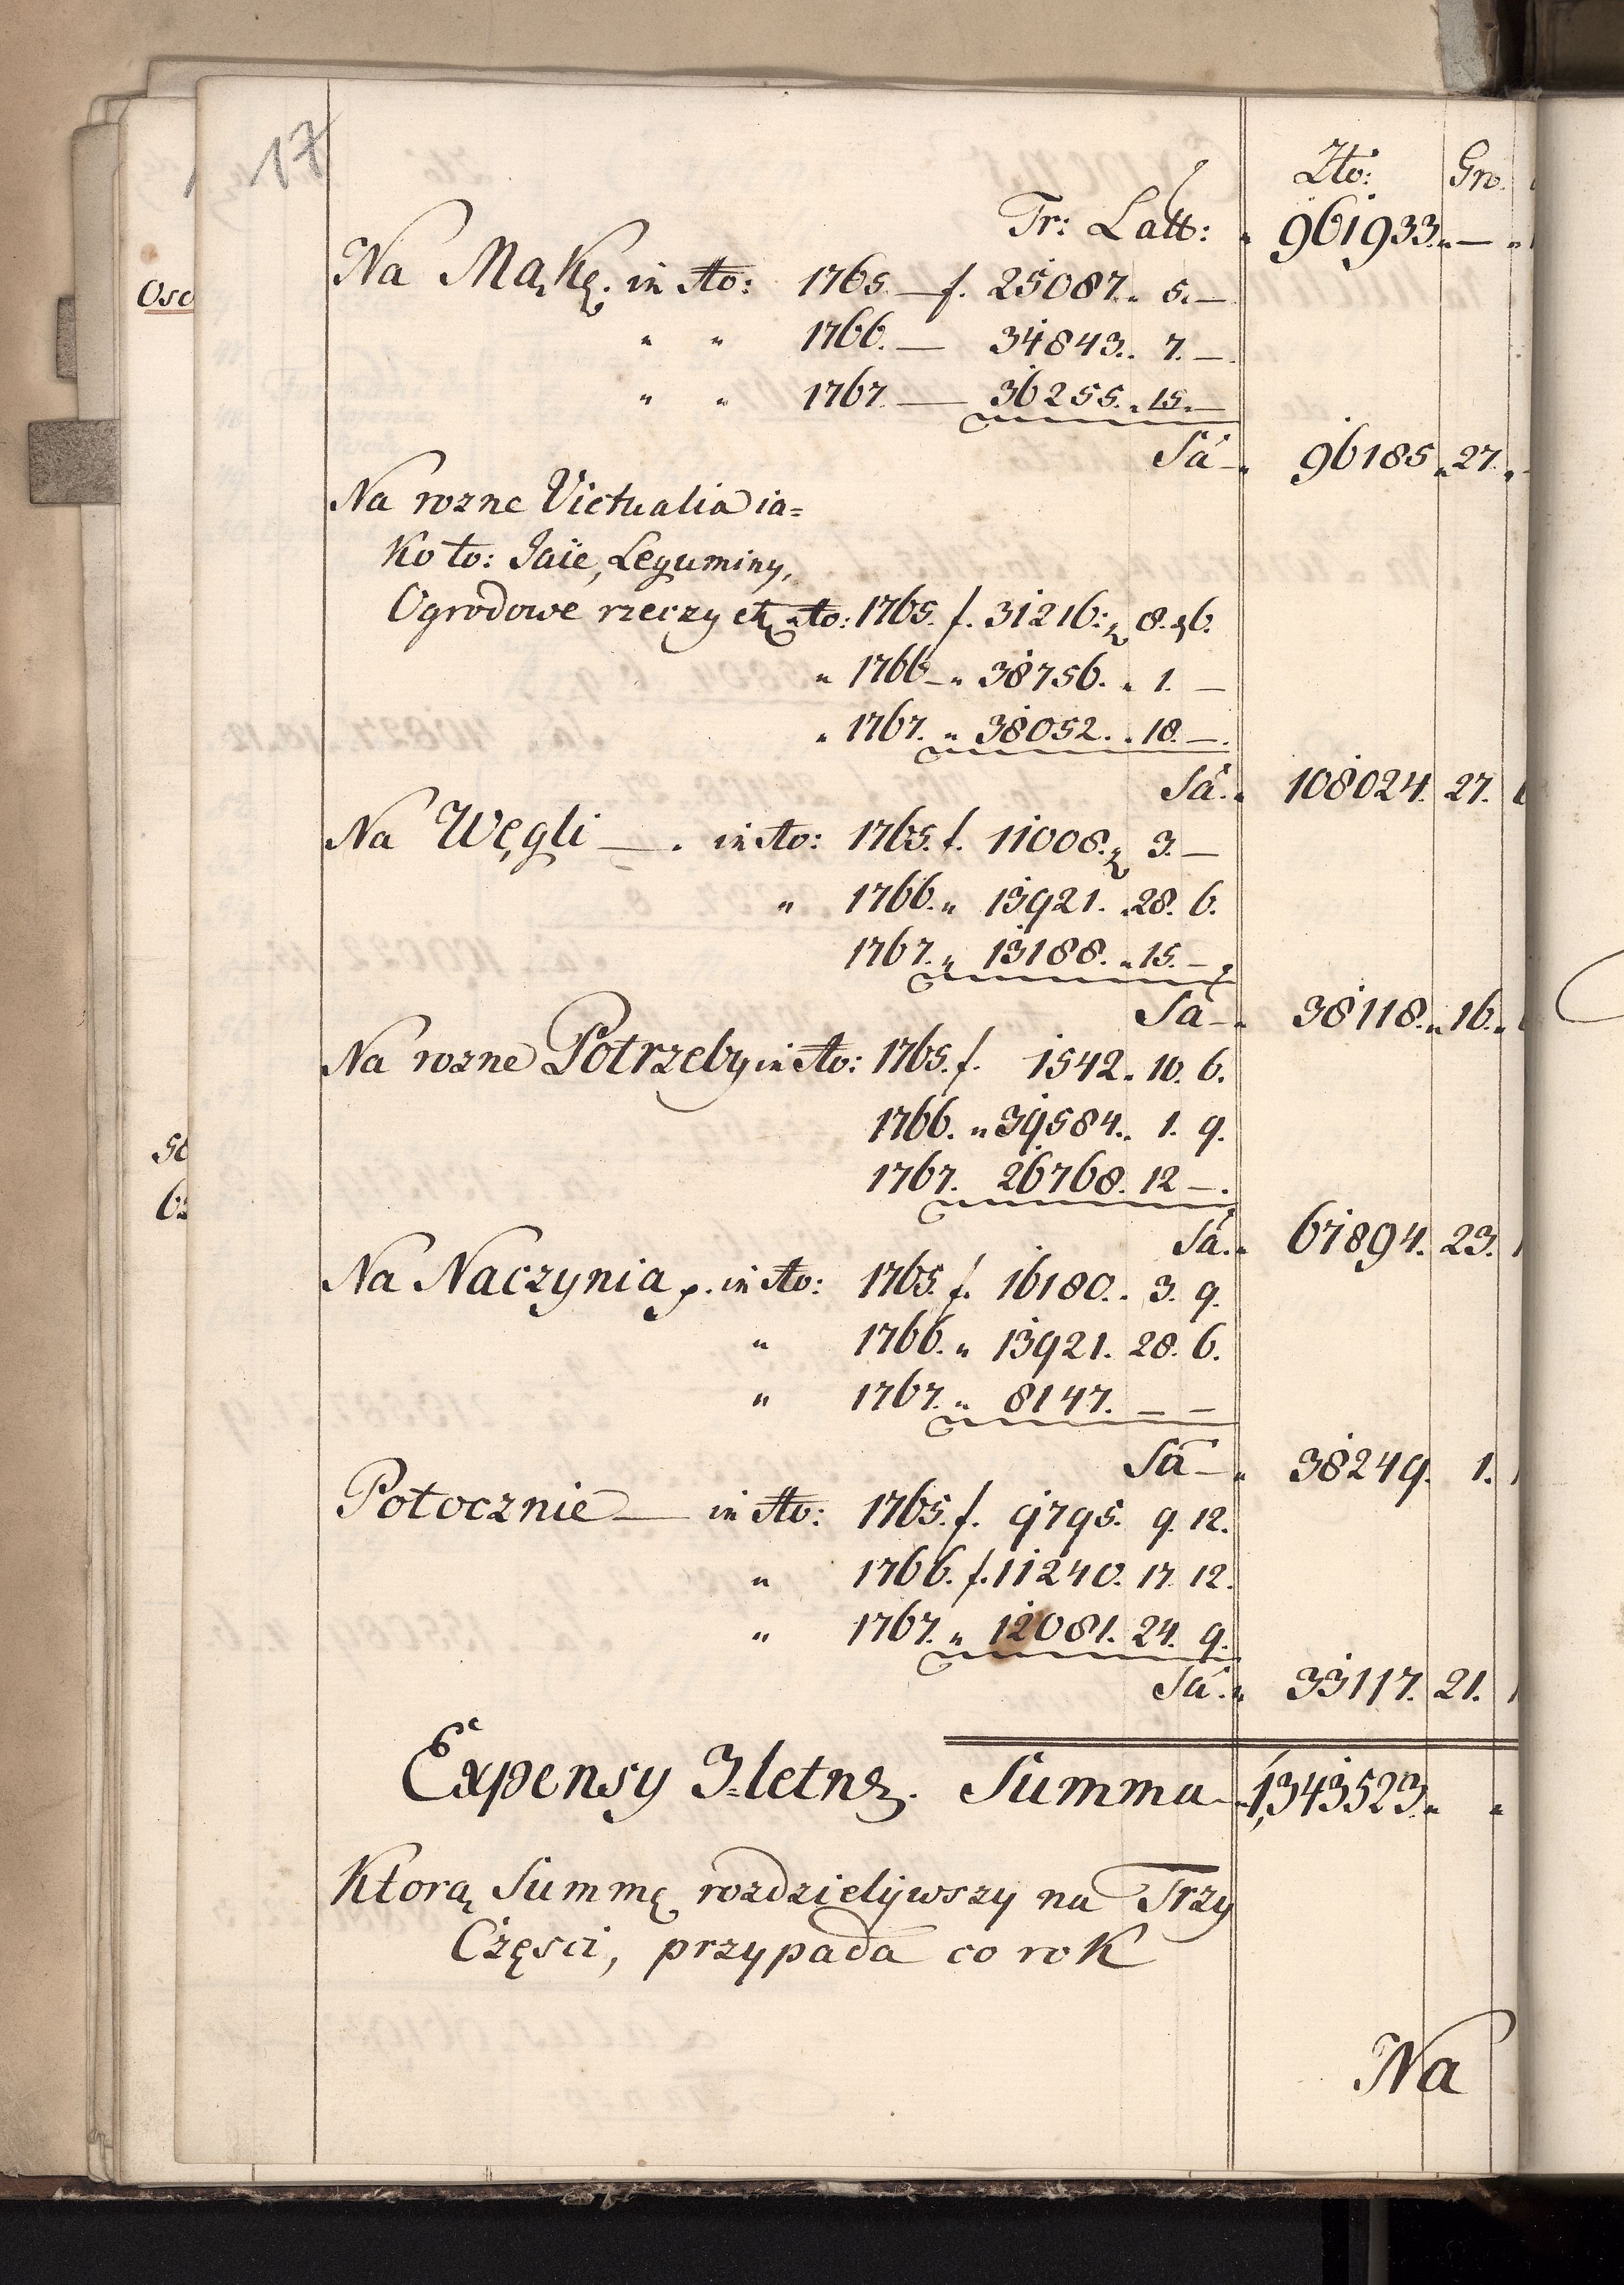 17
Zło: Gro.
Tr: Latt: 961933. —
Na Mąkę. in Ao: 1765. — f. 25087. 5. —
" " 1766. — 34843. 7. —
" " 1767. — 36255. 15. —
Sa — 96185. 27.
Na rozne Victualia ia=
ko to: Jaie, Leguminy,
Ogrodowe rzeczy Ao: 1765. f. 31216: 8. 6.
" 1766 — " 38756. " 1. —
" 1767. " 38052. " 18. —
Sa. 108024. 27.
Na Węgli — . in Ao: 1765. f. 11008. 3. —
" 1766. " 13921. 28. 6.
1767. " 13188. " 15. —
Sa — 38118. 16.
Na rozne Potrzeby in Ao: 1765. f. 1542. 10. 6.
1766. " 39584. 1. 9.
1767. 26768. 12 —.
Sa. 67894. 23.
Na Naczynia p. in Ao: 1765. f. 16180. 3. 9.
" 1766. " 13921. 28. 6.
" 1767. " 8147. — —
Sa — 38249. 1.
Potocznie — in Ao: 1765. f. 9795. 9. 12.
" 1766. f. 11240. 17. 12.
" 1767. " 12081. 24. 9.
Sa. 33117. 21.
Expensy 3-letnę. Summa 1,343523. "
Ktorą Summę rozdzieliwszy na Trzy
Części, przypada co rok
Na